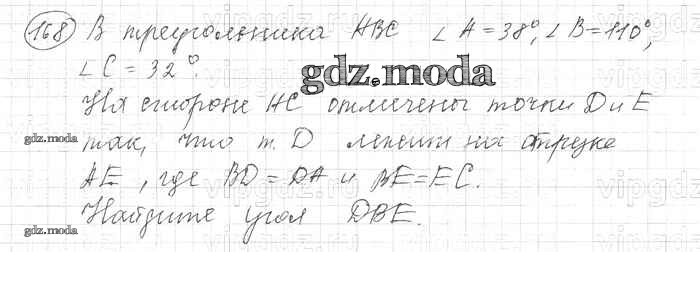 168) В треугольника ABC ∠A=38°, ∠B=110°,
∠C=32°.
gdz.moda
На стороне AC отмечены точки D и E
gdz.moda
так, что т. D лежит на отрезке
AE, где BD=DA и BE=EC.
Найдите угол DBE.
gdz.moda